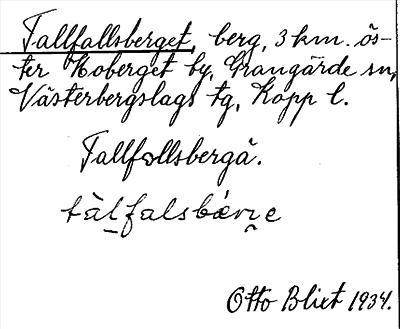 Tallfallsberget, berg, 3 km. ös-
ter Hoberget by, Grangärde sn,
Västerbergslags tg, Kopp l.
Tallfallsbergä.
tàlfalsbærje
Otto Blixt 1934.